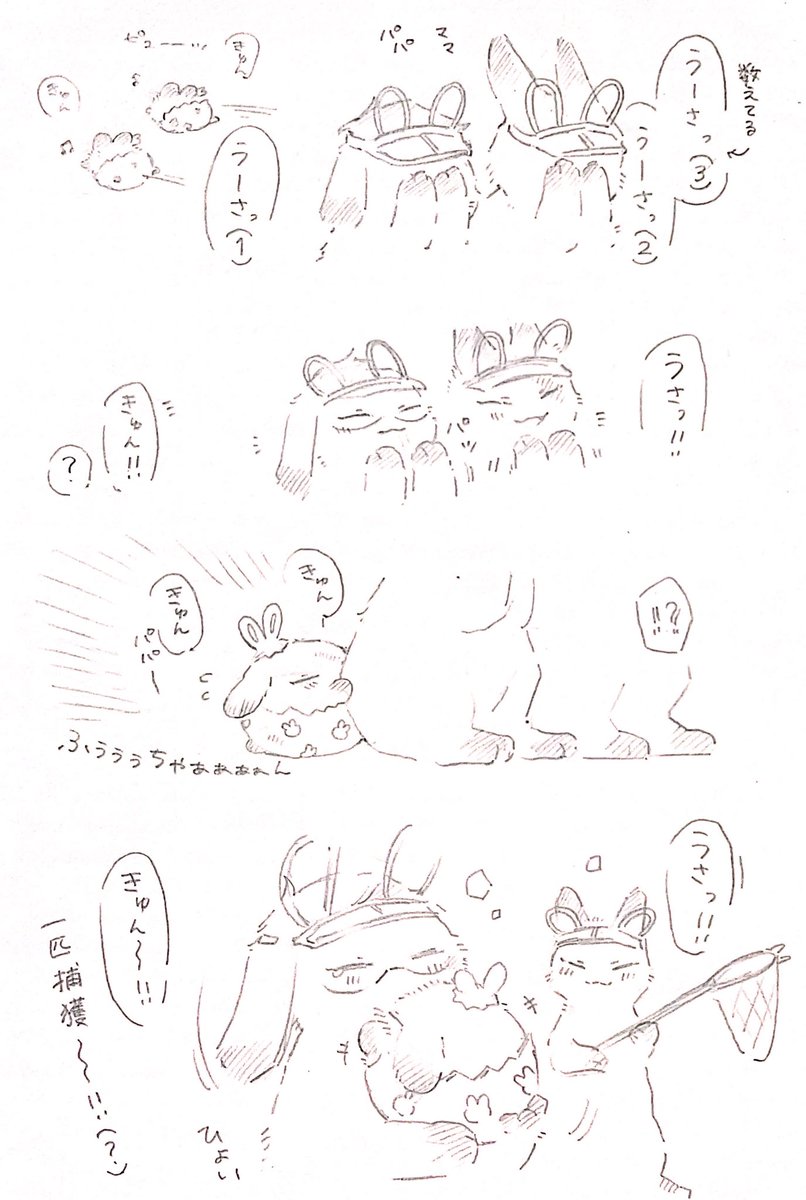 数えてる
うーさっ(3)
うーさっ(2)
ママ
パパ
うーさっ(1)
きゅん
ピューーー…
きゅん
うさっ!!
パッ
きゅん!!
?
!!?
きゅん
きゅん
パパー
ふぅぅぅちゃぁぁぁぁん
うさっ!!
きゅん〜!!
ひょい
一匹捕獲〜!!(?)